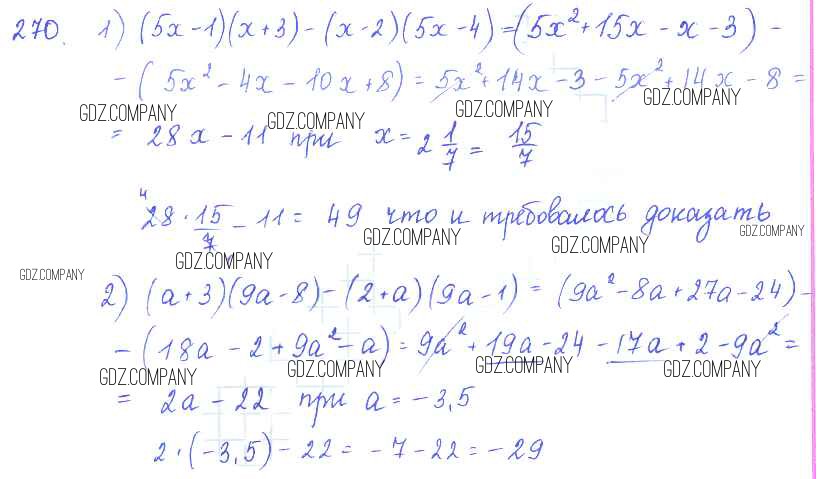 270. 1) (5x - 1)(x + 3) - (x - 2)(5x - 4) = (5x² + 15x - x - 3) -
- (5x² - 4x - 10x + 8) = 5x² + 14x - 3 - 5x² + 14x - 8 =
GDZ.COMPANY GDZ.COMPANY GDZ.COMPANY GDZ.COMPANY
= 28x - 11 при x = 2 1/7 = 15/7
4
28 · 15/7 - 11 = 49 что и требовалось доказать
GDZ.COMPANY GDZ.COMPANY GDZ.COMPANY GDZ.COMPANY GDZ.COMPANY
2) (a + 3)(9a - 8) - (2 + a)(9a - 1) = (9a² - 8a + 27a - 24) -
- (18a - 2 + 9a² - a) = 9a² + 19a - 24 - 17a + 2 - 9a² =
GDZ.COMPANY GDZ.COMPANY GDZ.COMPANY GDZ.COMPANY
= 2a - 22 при a = -3,5
2 · (-3,5) - 22 = -7 - 22 = -29